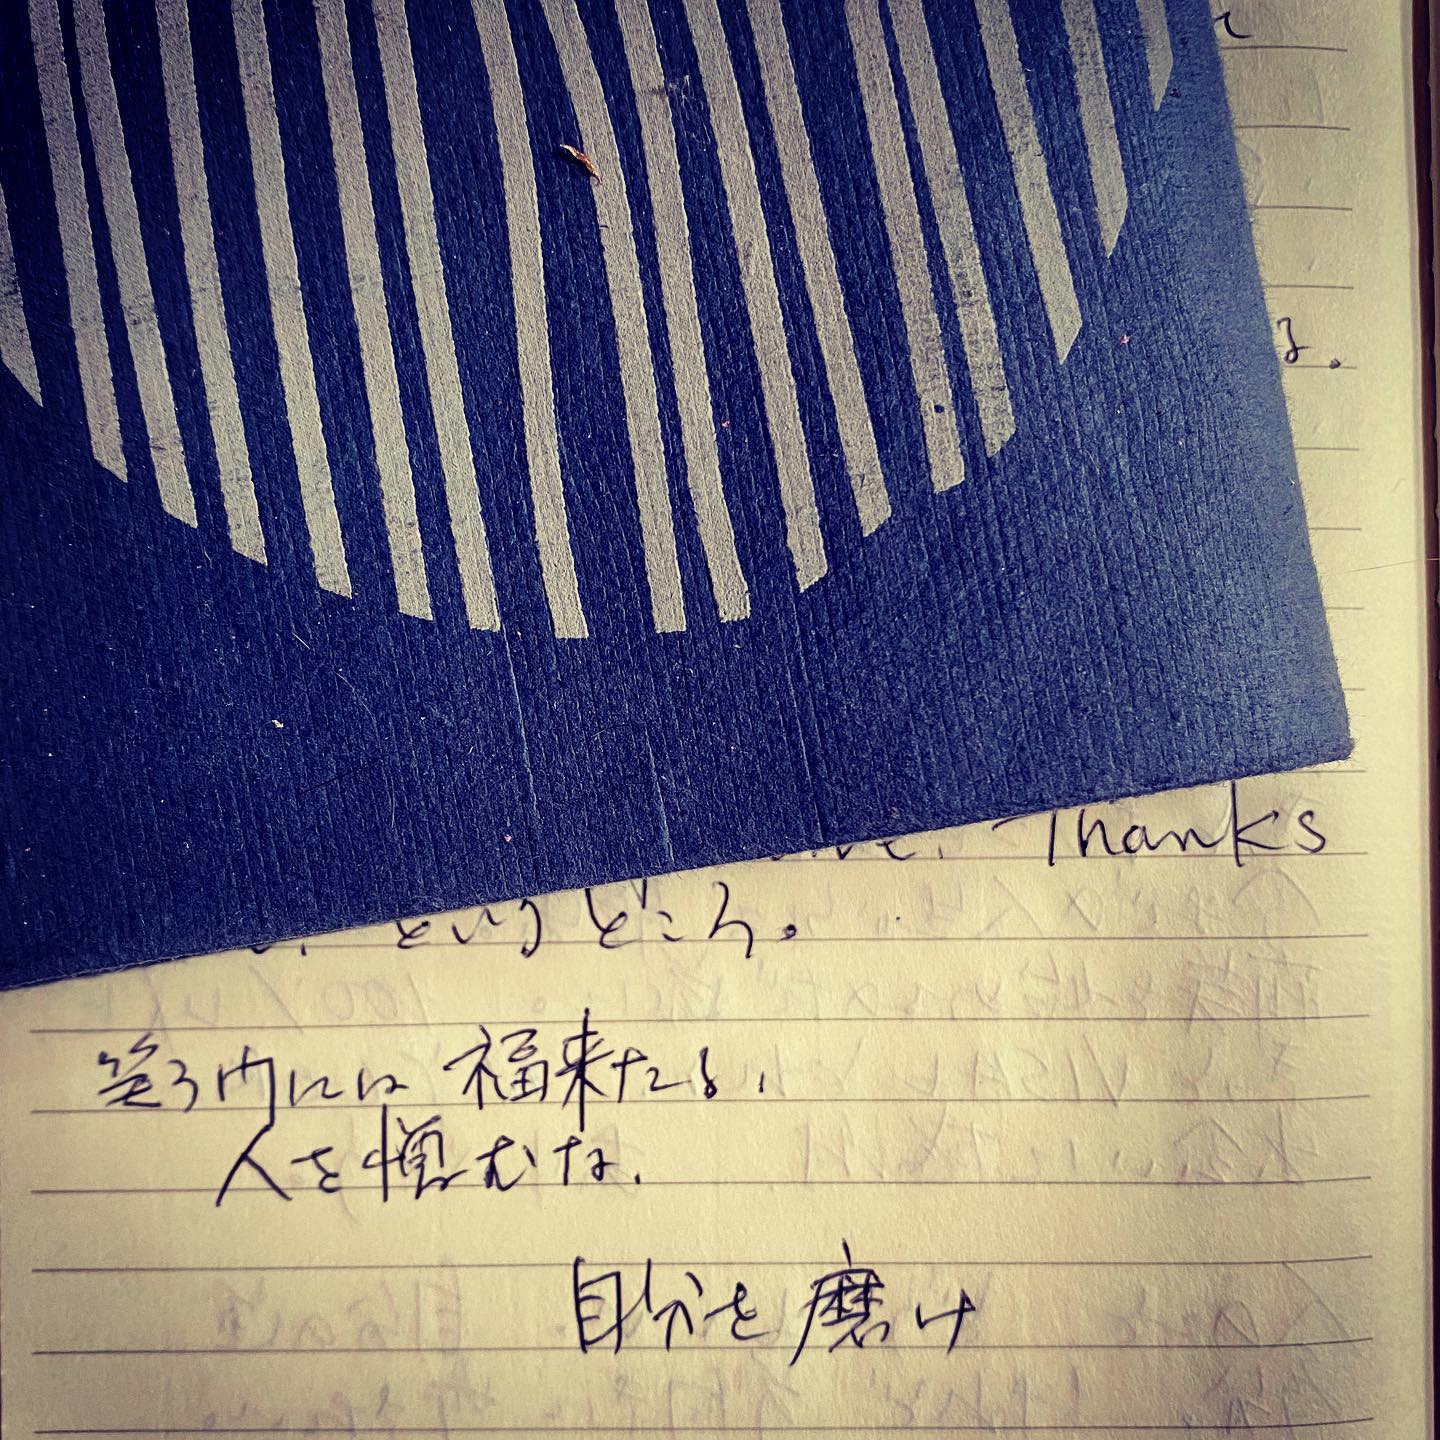 る。
Thanks
というところ。
笑う門には福来たる。
人を憎むな。
自分を磨け